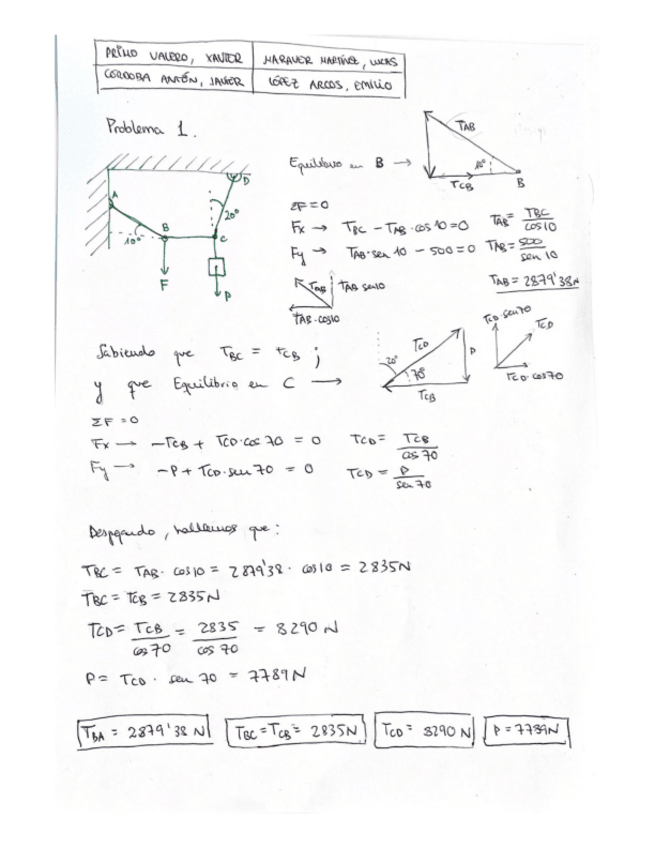 PRIMO VALERO, XAVIER
MARAVER MARTÍNEZ, LUCAS
CÓRDOBA ANTÓN, JAVIER
LÓPEZ ARCOS, EMILIO
Problema 1.
A
10°
B
F
C
20°
D
P
Equilibrio en B →
TAB
10°
TCB
B
ΣF=0
Fx → TBC - TAB·cos10=0
TAB= TBC/cos10
Fy → TAB·sen 10 - 500=0
TAB= 500/sen 10
TAB = 2879'38N
TAB
TAB sen10
TAB·cos10
Sabiendo que TBC = TCB ;
y que Equilibrio en C →
20°
TCD
70°
P
TCB
TCD·sen70
TCD
TCD·cos70
ΣF=0
Fx → -TCB + TCD·cos 70 = 0
TCD= TCB/cos 70
Fy → -P + TCD·sen 70 = 0
TCD = P/sen 70
Despejando, hallamos que:
TBC = TAB· cos10 = 2879'38 · cos10 = 2835N
TBC = TCB = 2835N
TCD= TCB/cos 70 = 2835/cos 70 = 8290 N
P = TCD · sen 70 = 7789N
TBA = 2879'38 N
TBC=TCB= 2835N
TCD= 8290 N
P = 7789N